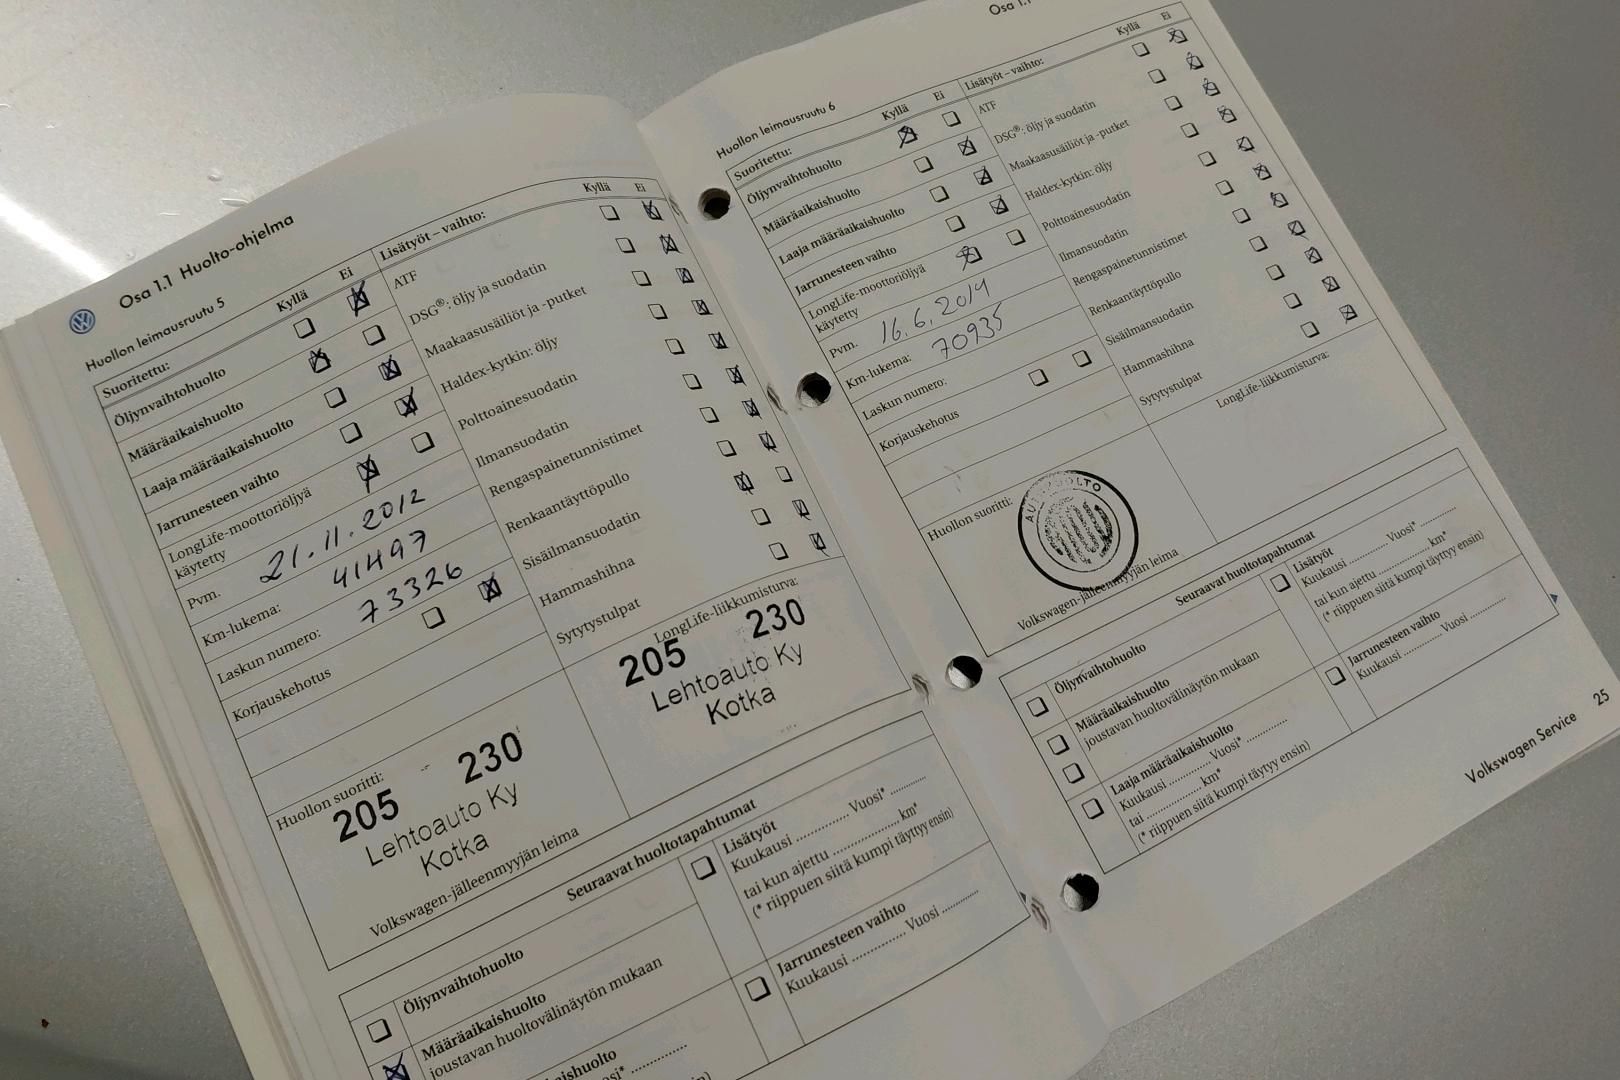 Osa 1.1 Huolto-ohjelma
Huollon leimausruutu 5
Suoritettu: Kyllä Ei
Öljynvaihtohuolto
Määräaikaishuolto
Laaja määräaikaishuolto
Jarrunesteen vaihto
LongLife-moottoriöljyä
käytetty
Pvm. 21.11.2012
Km-lukema: 41497
Laskun numero: 73326
Korjauskehotus
Huollon suoritti:
205 230
Lehtoauto Ky
Kotka
Volkswagen-jälleenmyyjän leima
Lisätyöt – vaihto: Kyllä Ei
ATF
DSG®: öljy ja suodatin
Maakaasusäiliöt ja -putket
Haldex-kytkin: öljy
Polttoainesuodatin
Ilmansuodatin
Rengaspainetunnistimet
Renkaantäyttöpullo
Sisäilmansuodatin
Hammashihna
Sytytystulpat
LongLife-liikkumisturva:
205 230
Lehtoauto Ky
Kotka
Seuraavat huoltotapahtumat
Öljynvaihtohuolto
Määräaikaishuolto
joustavan huoltovälinäytön mukaan
Lisätyöt
Kuukausi ............... Vuosi* ...............
tai kun ajettu ............... km*
(* riippuen siitä kumpi täytyy ensin)
Jarrunesteen vaihto
Kuukausi ............... Vuosi ..........
Osa 1.1
Huollon leimausruutu 6
Suoritettu: Kyllä Ei
Öljynvaihtohuolto
Määräaikaishuolto
Laaja määräaikaishuolto
Jarrunesteen vaihto
LongLife-moottoriöljyä
käytetty
Pvm. 16.6.2014
Km-lukema: 70935
Laskun numero:
Korjauskehotus
Huollon suoritti:
Volkswagen-jälleenmyyjän leima
Lisätyöt – vaihto: Kyllä Ei
ATF
DSG®: öljy ja suodatin
Maakaasusäiliöt ja -putket
Haldex-kytkin: öljy
Polttoainesuodatin
Ilmansuodatin
Rengaspainetunnistimet
Renkaantäyttöpullo
Sisäilmansuodatin
Hammashihna
Sytytystulpat
LongLife-liikkumisturva:
Seuraavat huoltotapahtumat
Öljynvaihtohuolto
Määräaikaishuolto
joustavan huoltovälinäytön mukaan
Laaja määräaikaishuolto
Kuukausi .......... Vuosi* ..........
tai ............... km*
(* riippuen siitä kumpi täytyy ensin)
Lisätyöt
Kuukausi .......... Vuosi* ..........
tai kun ajettu .......... km*
(* riippuen siitä kumpi täytyy ensin)
Jarrunesteen vaihto
Kuukausi .......... Vuosi ..........
Volkswagen Service 25